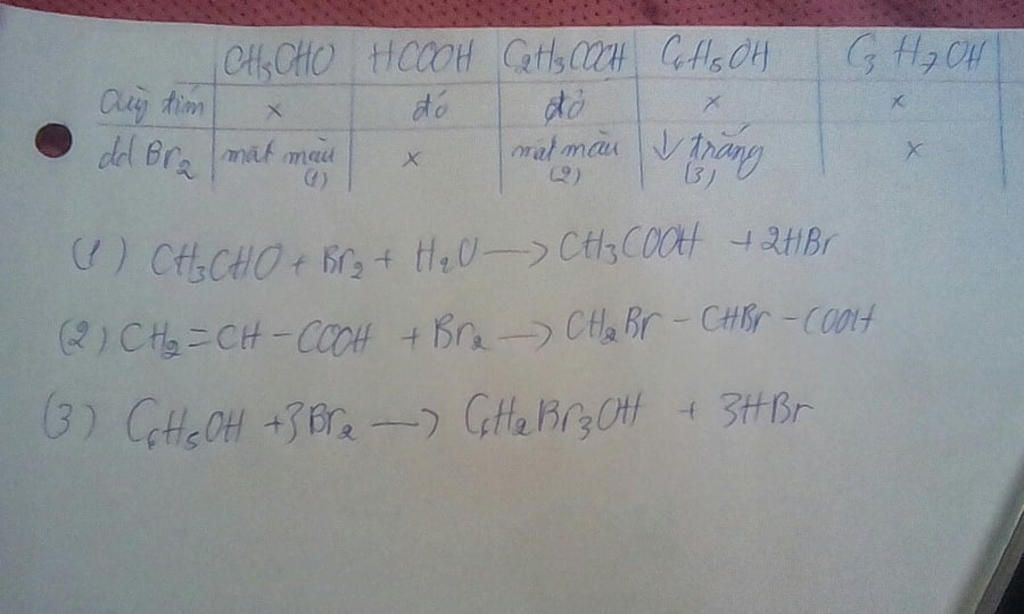 CH3CHO HCOOH C2H3COOH C6H5OH C3H7OH
Quỳ tím x đỏ đỏ x x
dd Br2 mất màu (1) x mất màu (2) ↓ trắng (3) x
(1) CH3CHO + Br2 + H2O → CH3COOH + 2HBr
(2) CH2=CH-COOH + Br2 → CH2Br - CHBr - COOH
(3) C6H5OH +3Br2 → C6H2Br3OH + 3HBr